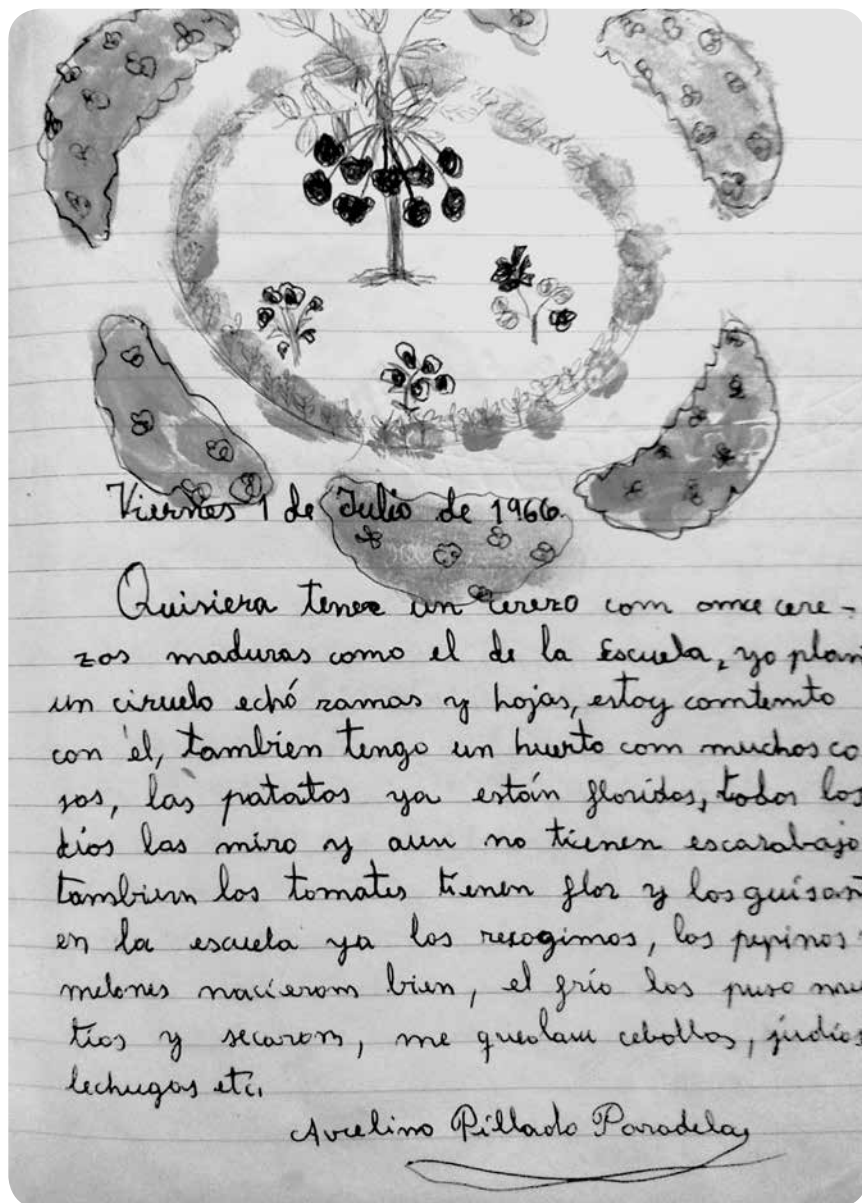 Viernes 1 de Julio de 1966.
Quisiera tener un cerezo com once cere-
zas maduras como el de la Escuela, yo plan
un ciruelo echó ramas y hojas, estoy comtemto
con él, tambien tengo un huerto com muchas co
sas, las patatas ya están floridas, todos los
dios las miro y aun no tienen escarabajo
tambien los tomates tienen flor y los guisan
en la escuela ya los recogimos, los pepinos
melones nacierom bien, el frío los puso mus
tios y secarom, me quedam cebollas, judias
lechugas etc.
Avelino Pillado Paradela